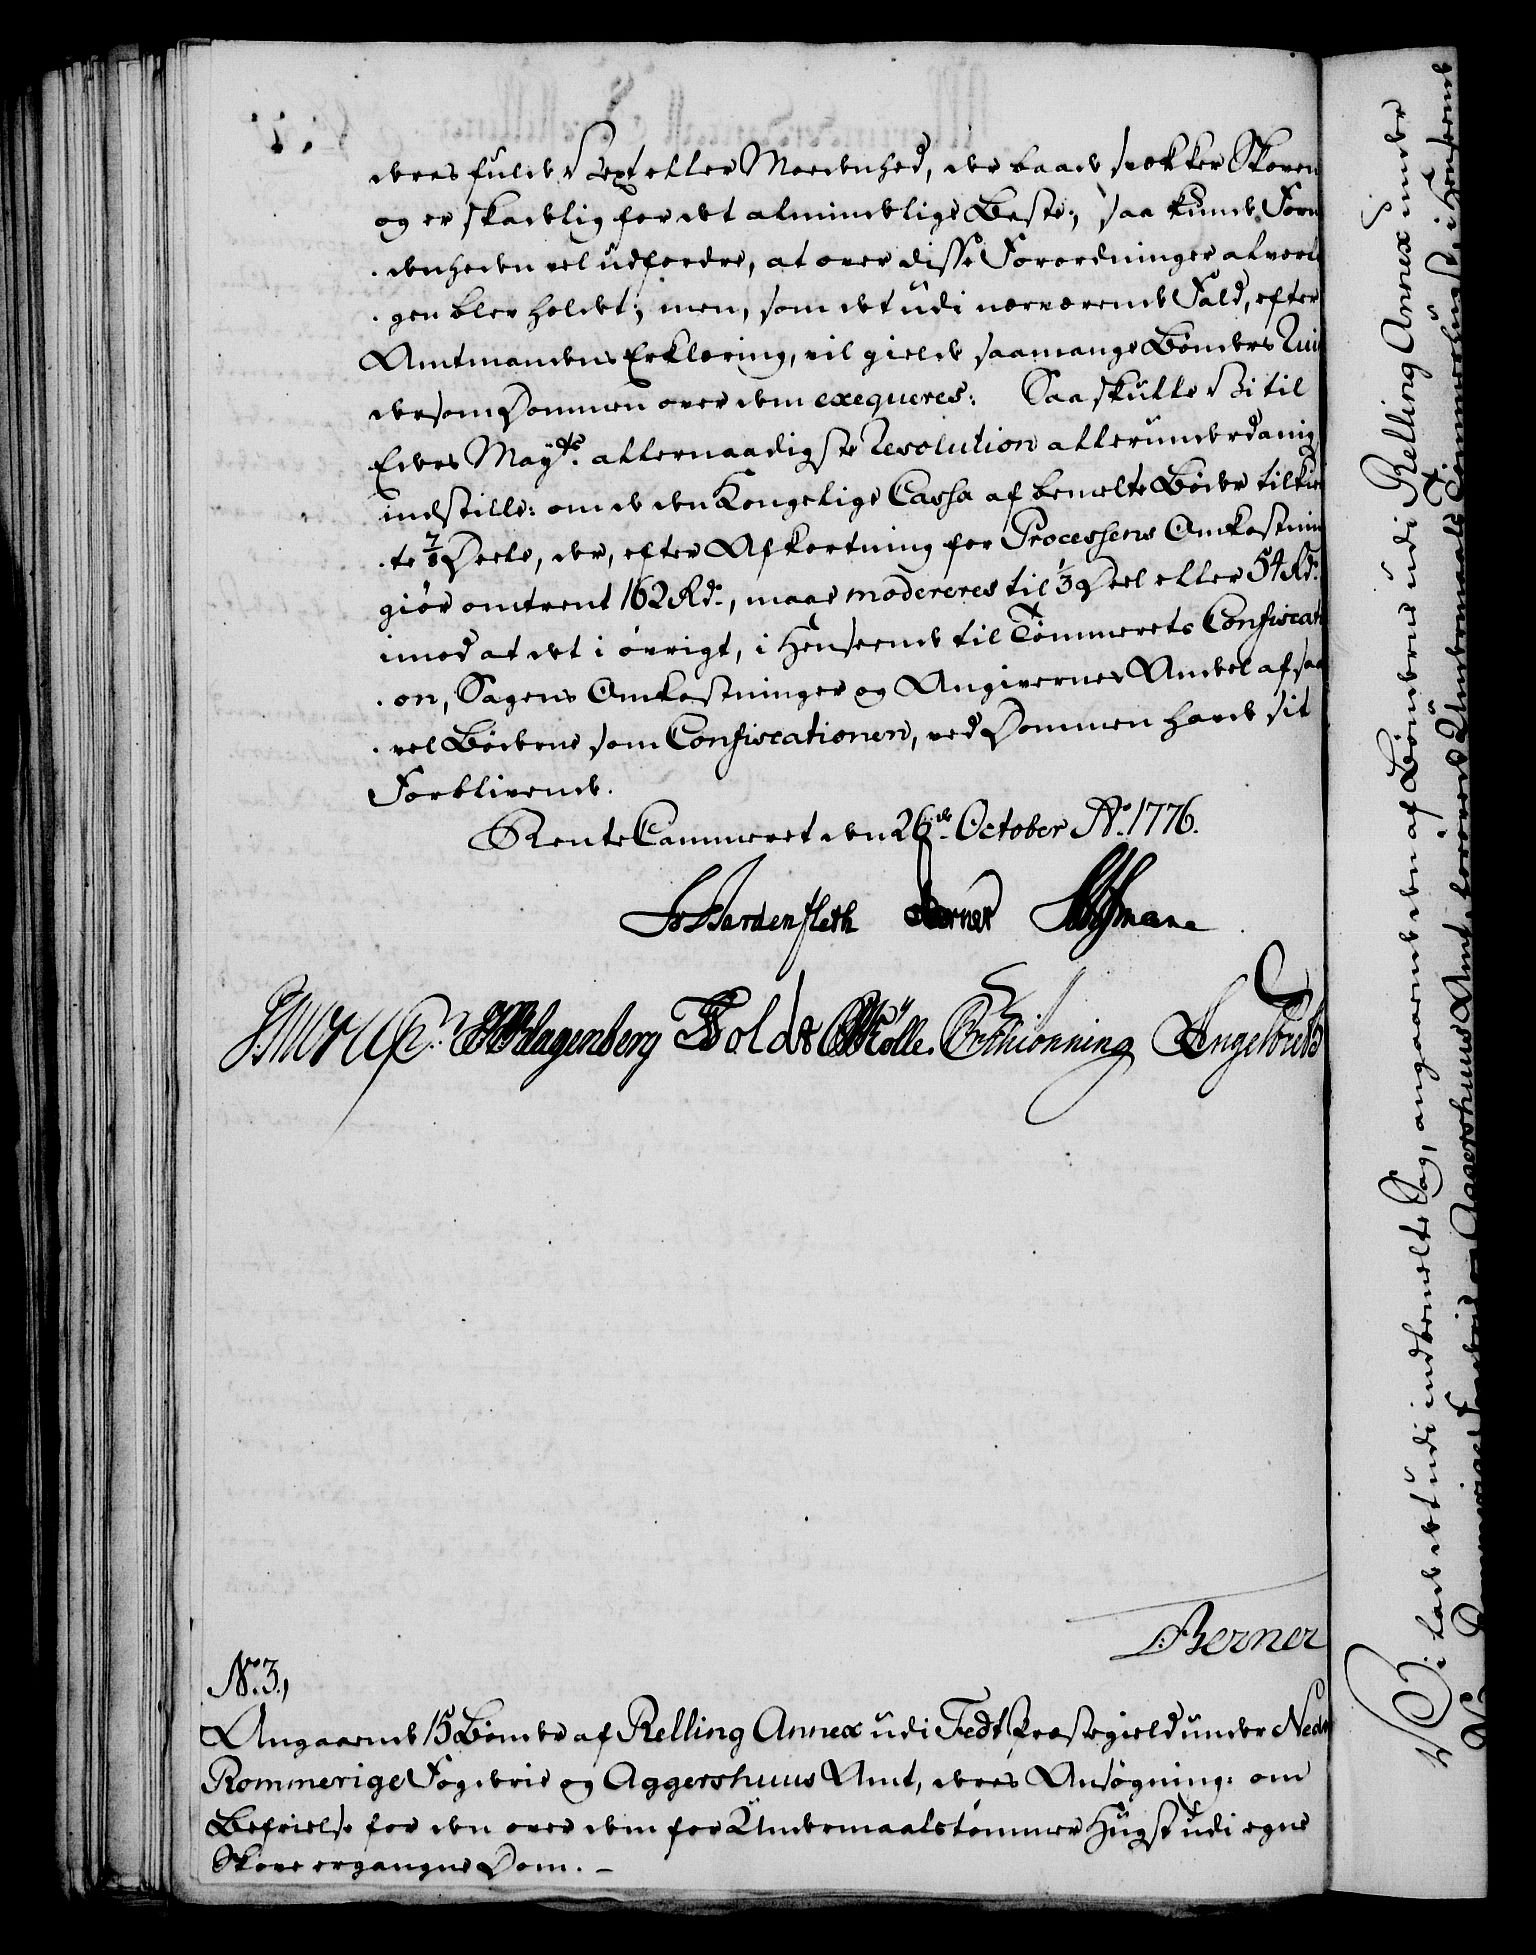 deres fulde Vext eller Moedenhed, der baade svækker Skoven
og er skadelig for det almindelige Beste; saa kunde Forn
denheden vel udfordre, at over disse Forordninger alvorli
gen blev holdet; men, som det udi nærværende Fald, efter
Amtmandens Erklæring, vil gielde saamange Bønders Rui
dersom Dommen over dem exequeres: Saa skulle Vi til
Eders Mayts. allernaadigste Resolution allerunderdanig
indstille: om de den Kongelige Cassa af bemelte Bøder tilkie
te 7/8 Deele, der, efter Afkortning for Processens Omkostnin
giør omtrent 162 Rd., maae modereres til 1/3 Deel eller 54 Rd.
imod at det i øvrigt, i Henseende til Tømmerets Confiscati
on, Sagens Omkostninger og Angivernes Andeel af saa
vel Bøderne som Confiscationen, ved Dommen havde sit
Forblivende.
RenteCammeret den 26de October Ao. 1776.
Wardenfleth Berner
Klagenberg Holdt Mølle Schiønning Engelbreth
Berner
No. 3.,
Angaaende 15 Bønder af Relling Annex udi Fedt Præstegield under Nedr
Rommerige Fogderie og Aggershuus Amt, deres Ansøgning: om
Befrielse for den over dem for Undermaalstømmer Hugst udi egne
Skove ergangne Dom. –
Vi: lade det udi indbemelte Sag, angaaende en af Bønderne udi Relling Annex under
Rommeriges Fogderie og Aggershuus Amt forøved Undermaals Tømmerhugst, i Henseende